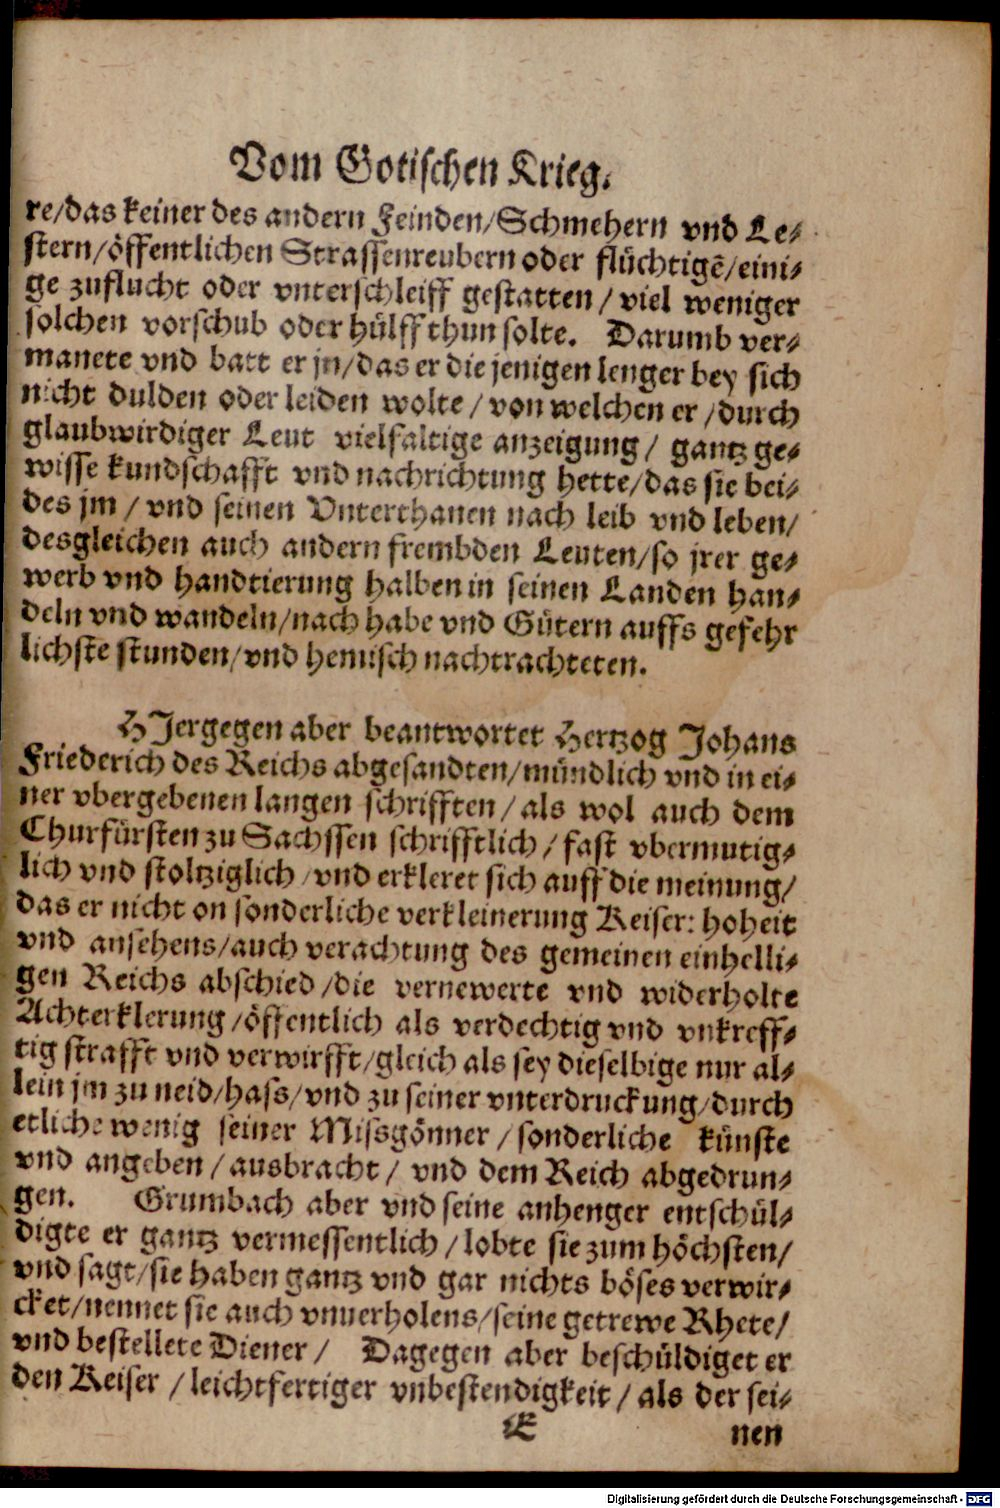 Vom Gotischen Krieg.
re/das keiner des andern Feinden/Schmehern vnd Le-
stern/öffentlichen Strassenreubern oder flüchtigē/eini-
ge zuflucht oder vnterschleiff gestatten/ viel weniger
solchen vorschub oder hülff thun solte. Darumb ver-
manete vnd batt er jn/das er die jenigen lenger bey sich
nicht dulden oder leiden wolte / von welchen er /durch
glaubwirdiger Leut vielfaltige anzeigung/ gantz ge-
wisse kundschafft vnd nachrichtung hette/das sie bei-
des jm / vnd seinen Vnterthanen nach leib vnd leben/
desgleichen auch andern frembden Leuten/so jrer ge-
werb vnd handtierung halben in seinen Landen han-
deln vnd wandeln/nach habe vnd Gütern auffs gefehr
lichste stunden/vnd hemisch nachtrachteten.
HJergegen aber beantwortet Hertzog Johans
Friederich des Reichs abgesandten/mündlich vnd in ei-
ner vbergebenen langen schrifften/ als wol auch dem
Churfürsten zu Sachssen schrifftlich/ fast vbermutig-
lich vnd stoltziglich/vnd erkleret sich auff die meinung/
das er nicht on sonderliche verkleinerung Keiser: hoheit
vnd ansehens/auch verachtung des gemeinen einhelli-
gen Reichs abschied /die vernewerte vnd widerholte
Achterklerung /öffentlich als verdechtig vnd vnkreff-
tig strafft vnd verwirfft/gleich als sey dieselbige nur al-
lein jm zu neid/hass/vnd zu seiner vnterdruckung/durch
etliche wenig seiner Missgönner /sonderliche künste
vnd angeben / ausbracht/ vnd dem Reich abgedrun-
gen. Grumbach aber vnd seine anhenger entschül-
digte er gantz vermessentlich /lobte sie zum höchsten/
vnd sagt/sie haben gantz vnd gar nichts böses verwir-
cket/nennet sie auch vnuerholens/seine getrewe Rhete/
vnd bestellete Diener / Dagegen aber beschüldiget er
den Keiser /leichtfertiger vnbestendigkeit/ als der sei-
E nen
Digitalisierung gefördert durch die Deutsche Forschungsgemeinschaft - DFG